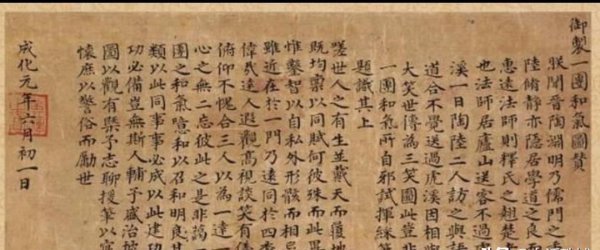 御製一團和氣圖贊
朕聞晉陶淵明乃儒門之
陸脩靜亦隱居學道之良
惠遠法師則釋氏之翹楚
也法師居廬山送客不過
溪一日陶陸二人訪之與
道合不覺送過虎溪因相
大笑世傳為三笑圖此豈非
一團和氣所自邪試揮綵
題識其上
嗟世人之有生並戴天而履地
既均稟以同賦何彼殊而此異
惟鑿智以自私外形骸而相忌
雖近在於一門乃遠同於四
偉哉達人遐觀高視談笑有儀
俯仰不愧合三人以為一達
心之無二忘彼此之是非藹
團之和氣噫和以召和明良其
類以此同事事必成以此建功
功必備豈無斯人輔予盛治披
圖以觀有槩予志聊援筆以寫
懷庶以警俗而勵世
成化元年六月初一日